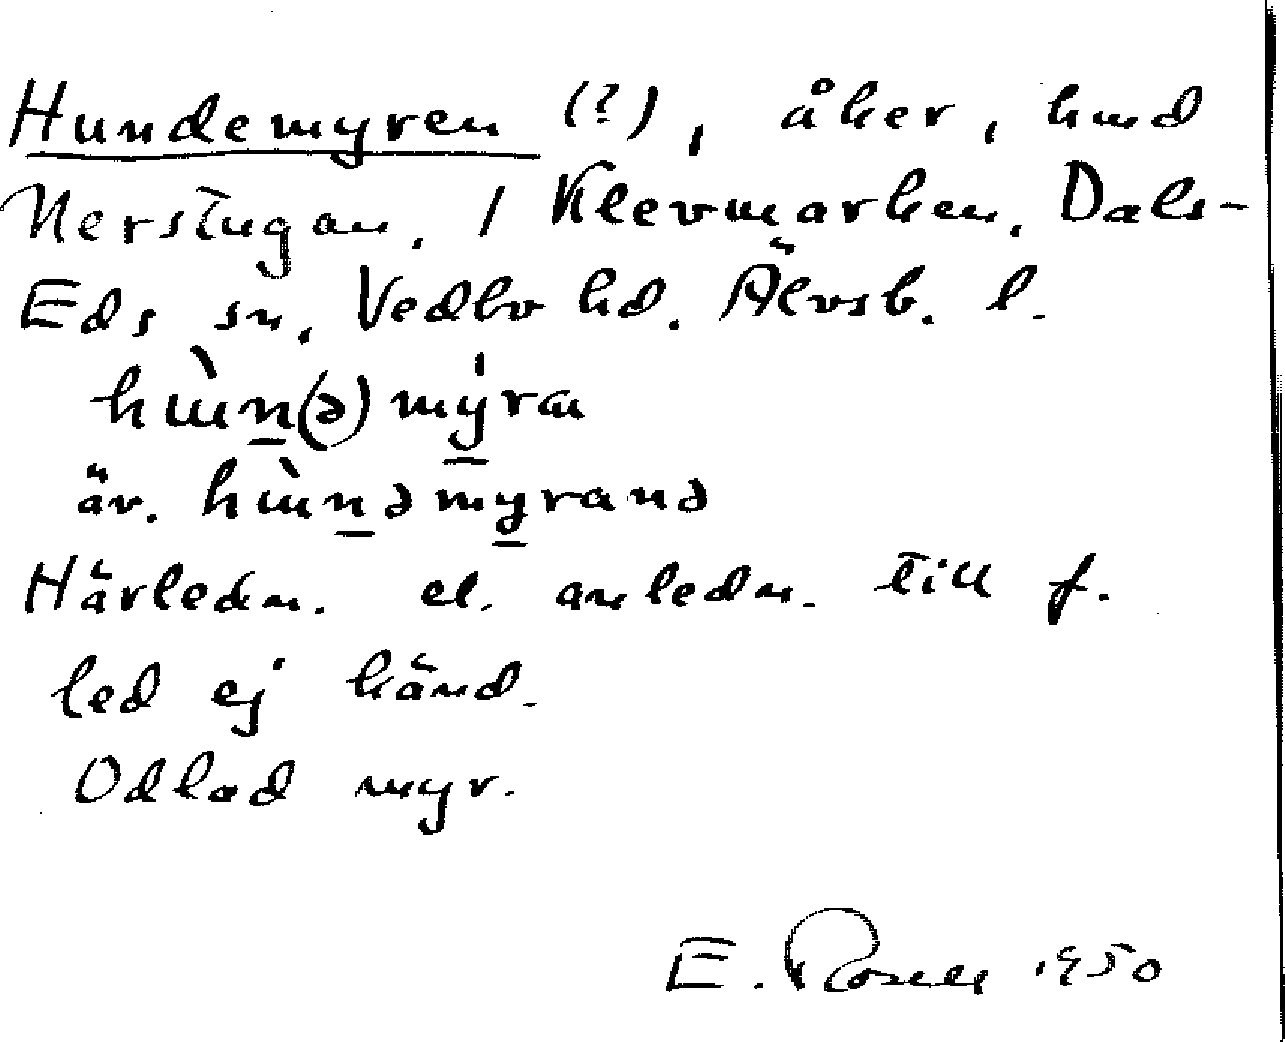 Hundemyren (?), åker, hmd
Nerstugan, 1 Klevmarken, Dals-
Eds sn, Vedbo hd. Älvsb. l.
hɯ̀n(ə)mýra
äv. hɯ̀nəmyranə
Härledn. el. anledn. till f.
led ej känd.
Odlad myr.
E. Rosell 1950